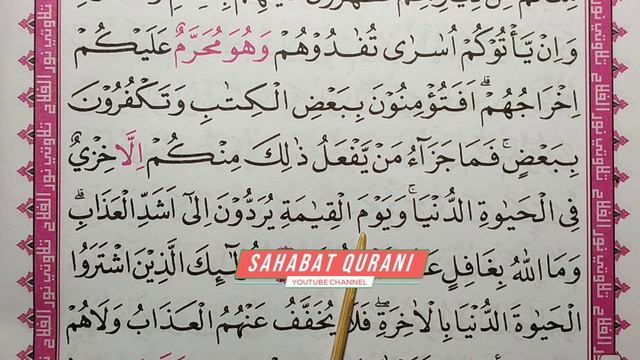 وَاِنْ يَّأْتُوْكُمْ اُسٰرٰى تُفٰدُوْهُمْ وَهُوَ مُحَرَّمٌ عَلَيْكُمْ
اِخْرَاجُهُمْ ۗ اَفَتُؤْمِنُوْنَ بِبَعْضِ الْكِتٰبِ وَتَكْفُرُوْنَ
بِبَعْضٍ ۚ فَمَا جَزَاۤءُ مَنْ يَّفْعَلُ ذٰلِكَ مِنْكُمْ اِلَّا خِزْيٌ
فِى الْحَيٰوةِ الدُّنْيَا ۚ وَيَوْمَ الْقِيٰمَةِ يُرَدُّوْنَ اِلٰٓى اَشَدِّ الْعَذَابِ ۗ
وَمَا اللّٰهُ بِغَافِلٍ الَّذِيْنَ اشْتَرَوُا
SAHABAT QURANI
YOUTUBE CHANNEL
الْحَيٰوةَ الدُّنْيَا بِالْاٰخِرَةِ ۖ فَلَا يُخَفَّفُ عَنْهُمُ الْعَذَابُ وَلَاهُمْ